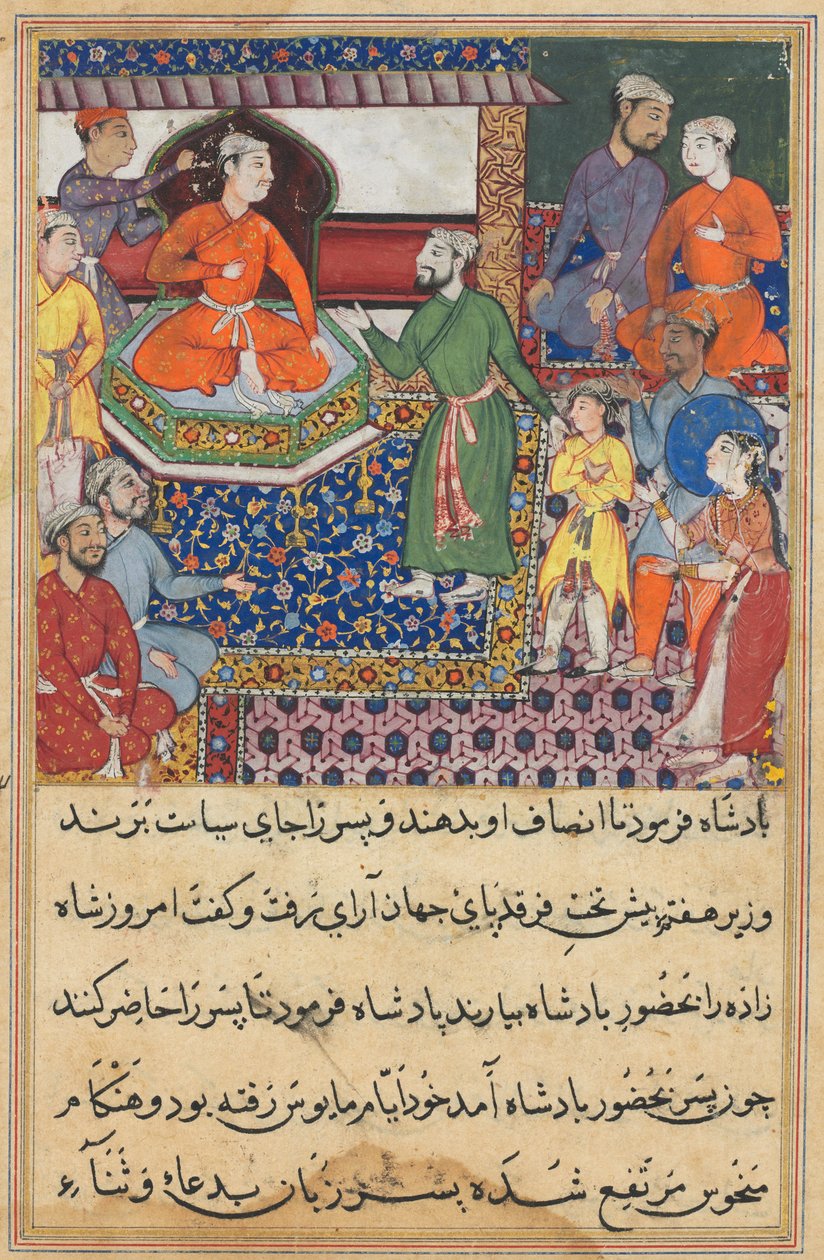 بادشاه فرمود تا انصاف او بدهند و پسر را جاي سیاست برند
وزیر هفتم پیش تختِ فرقد پايْ جهان آراي رَفتَ و کفتَ امروز شاه
زادَه را بحَضُورِ بادشاه بیارند پادشاه فرمود تَا پسَر رَا حَاضِر کنند
چون پسَر بحُضُور بادشاه آمد خُود اَیّام مایوسَ رَفته بود و هَنْکَام
مَنحُوس مُرتَفِع شَدَه پسر زَبان بدعاءْ وَ ثَنَآءِ